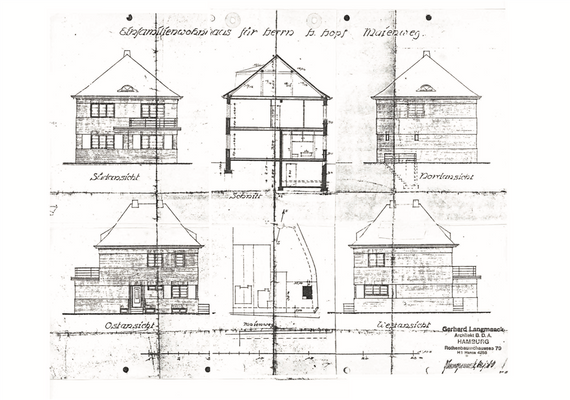 Einfamilienwohnhaus für Herrn H. Hopf Maienweg.
Südansicht
Schnitt
Nordansicht
Ostansicht
Maienweg
Westansicht
Gerhard Langmaack
Architekt B. D. A.
HAMBURG
Rothenbaumchaussee 73